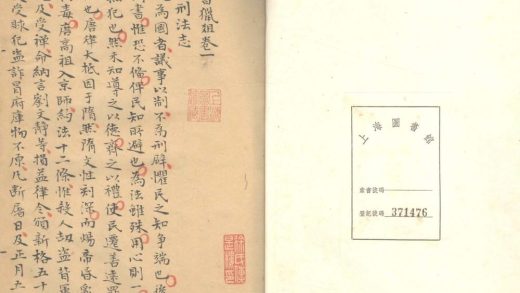 獵俎卷一
刑法志
為國者議事以制不為刑辟懼民之知爭端也後
書惟恐不備俾民知所避也為法雖殊用心則一
無犯也然未知導之以德齊之以禮使民遷善遠罪
也唐律大抵因于隋然隋文性刻深而煬帝昏亂
毒唐高祖入京師約法十二條惟殺人劫盜背軍
及受禪命納言劉文靜等損益律令頒新格五十
受賕犯盜詐冒府庫物不原凡斷屠日及正月五
上海圖書館
索書號碼
登記號碼 371476